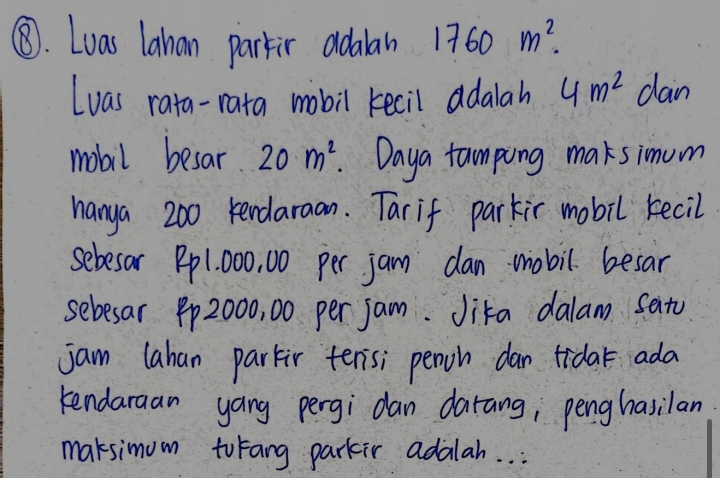 8. Luas lahan parkir adalah 1760 m².
Luas rata-rata mobil kecil adalah 4 m² dan
mobil besar 20 m². Daya tampung maksimum
hanya 200 kendaraan. Tarif parkir mobil kecil
sebesar Rp1.000,00 per jam dan mobil besar
sebesar Rp2000,00 per jam. Jika dalam satu
jam lahan parkir terisi penuh dan tidak ada
kendaraan yang pergi dan datang, penghasilan
maksimum tukang parkir adalah ...